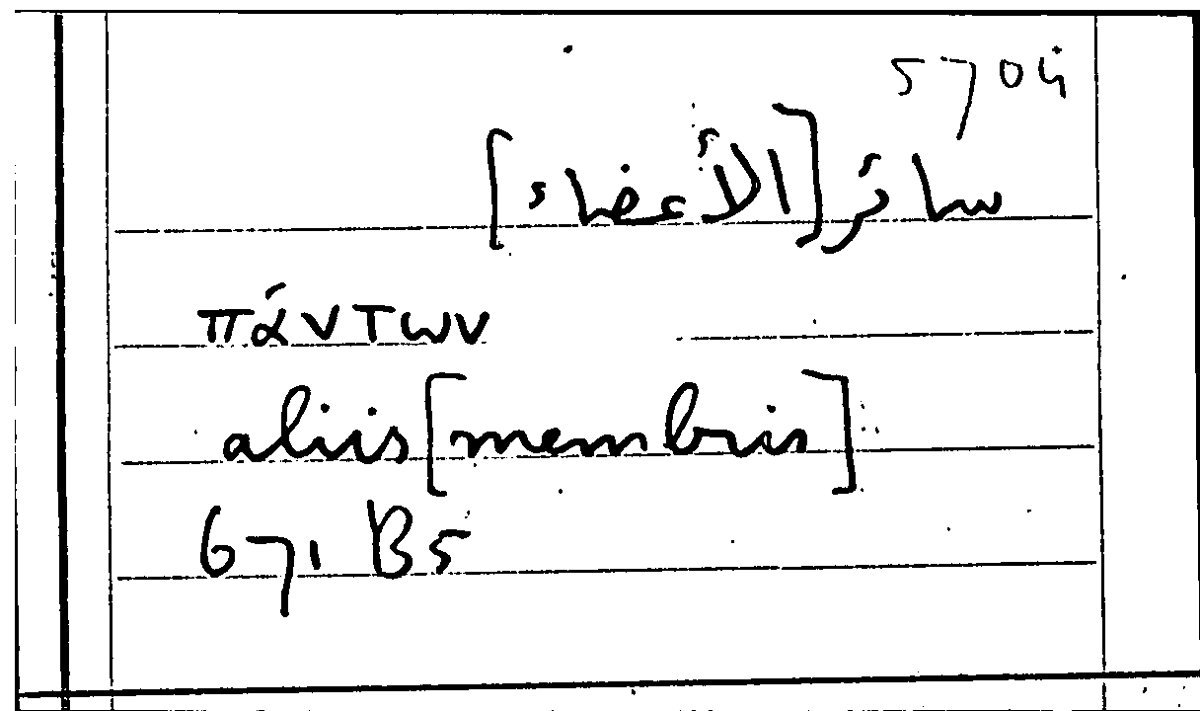 5704
سائر [الأعضاء]
πάντων
aliis [membris]
671 B5